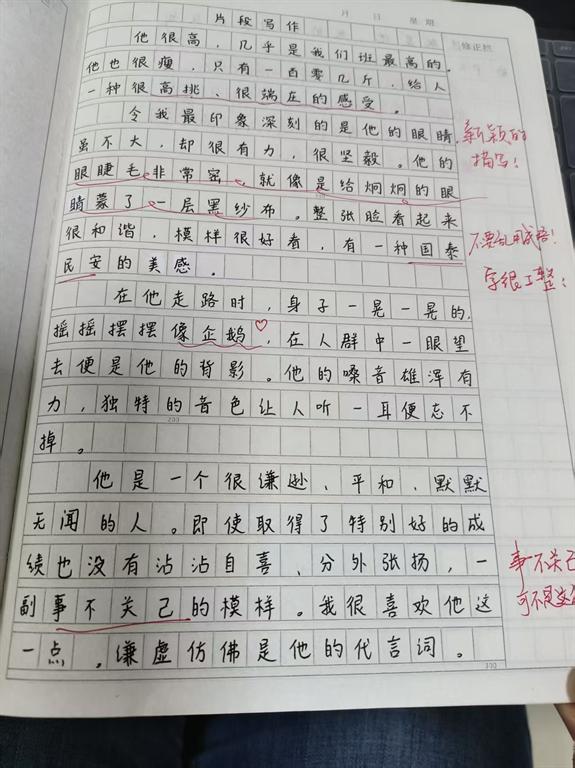 月 日 星期
片段写作
修正栏
他很高，几乎是我们班最高的。
他也很瘦，只有一百零几斤，给人
一种很高挑、很端庄的感受。
令我最印象深刻的是他的眼睛，
虽不大，却很有力，很坚毅。他的
眼睫毛非常密，就像是给炯炯的眼
睛蒙了一层黑纱布。整张脸看起来
很和谐，模样很好看，有一种国泰
民安的美感。
在他走路时，身子一晃一晃的，
摇摇摆摆像企鹅，在人群中一眼望
去便是他的背影。他的嗓音雄浑有
力，独特的音色让人听一耳便忘不
掉。
200
他是一个很谦逊、平和、默默
无闻的人。即使取得了特别好的成
绩也没有沾沾自喜、分外张扬，一
副事不关己的模样。我很喜欢他这
一点。谦虚仿佛是他的代言词。
300
新颖的
描写！
不要乱用成语！
字很工整！
事不关己
可不是